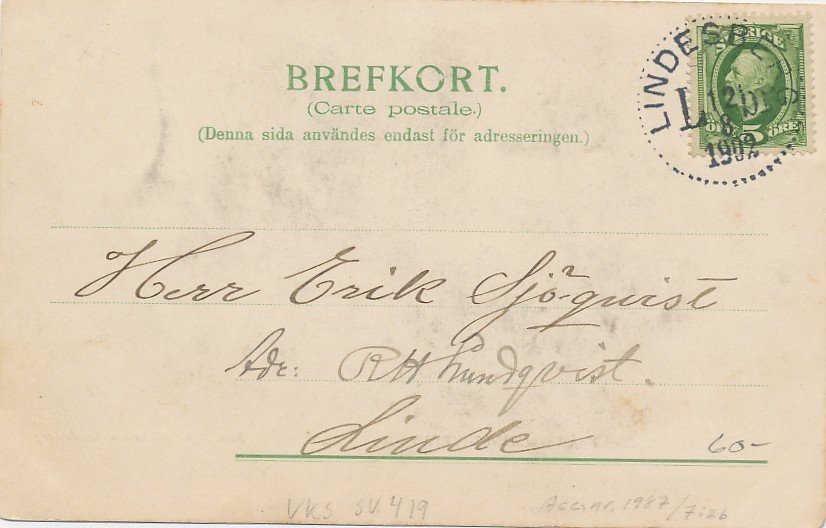 BREFKORT.
(Carte postale.)
(Denna sida användes endast för adresseringen.)
LINDESBERG
SVERIGE
L
1902
5 ÖRE
Herr Erik Sjöqvist
Adr: R H Lundqvist.
Linde
60-
VKS SV. 419
Acc.nr. 1987/7:26